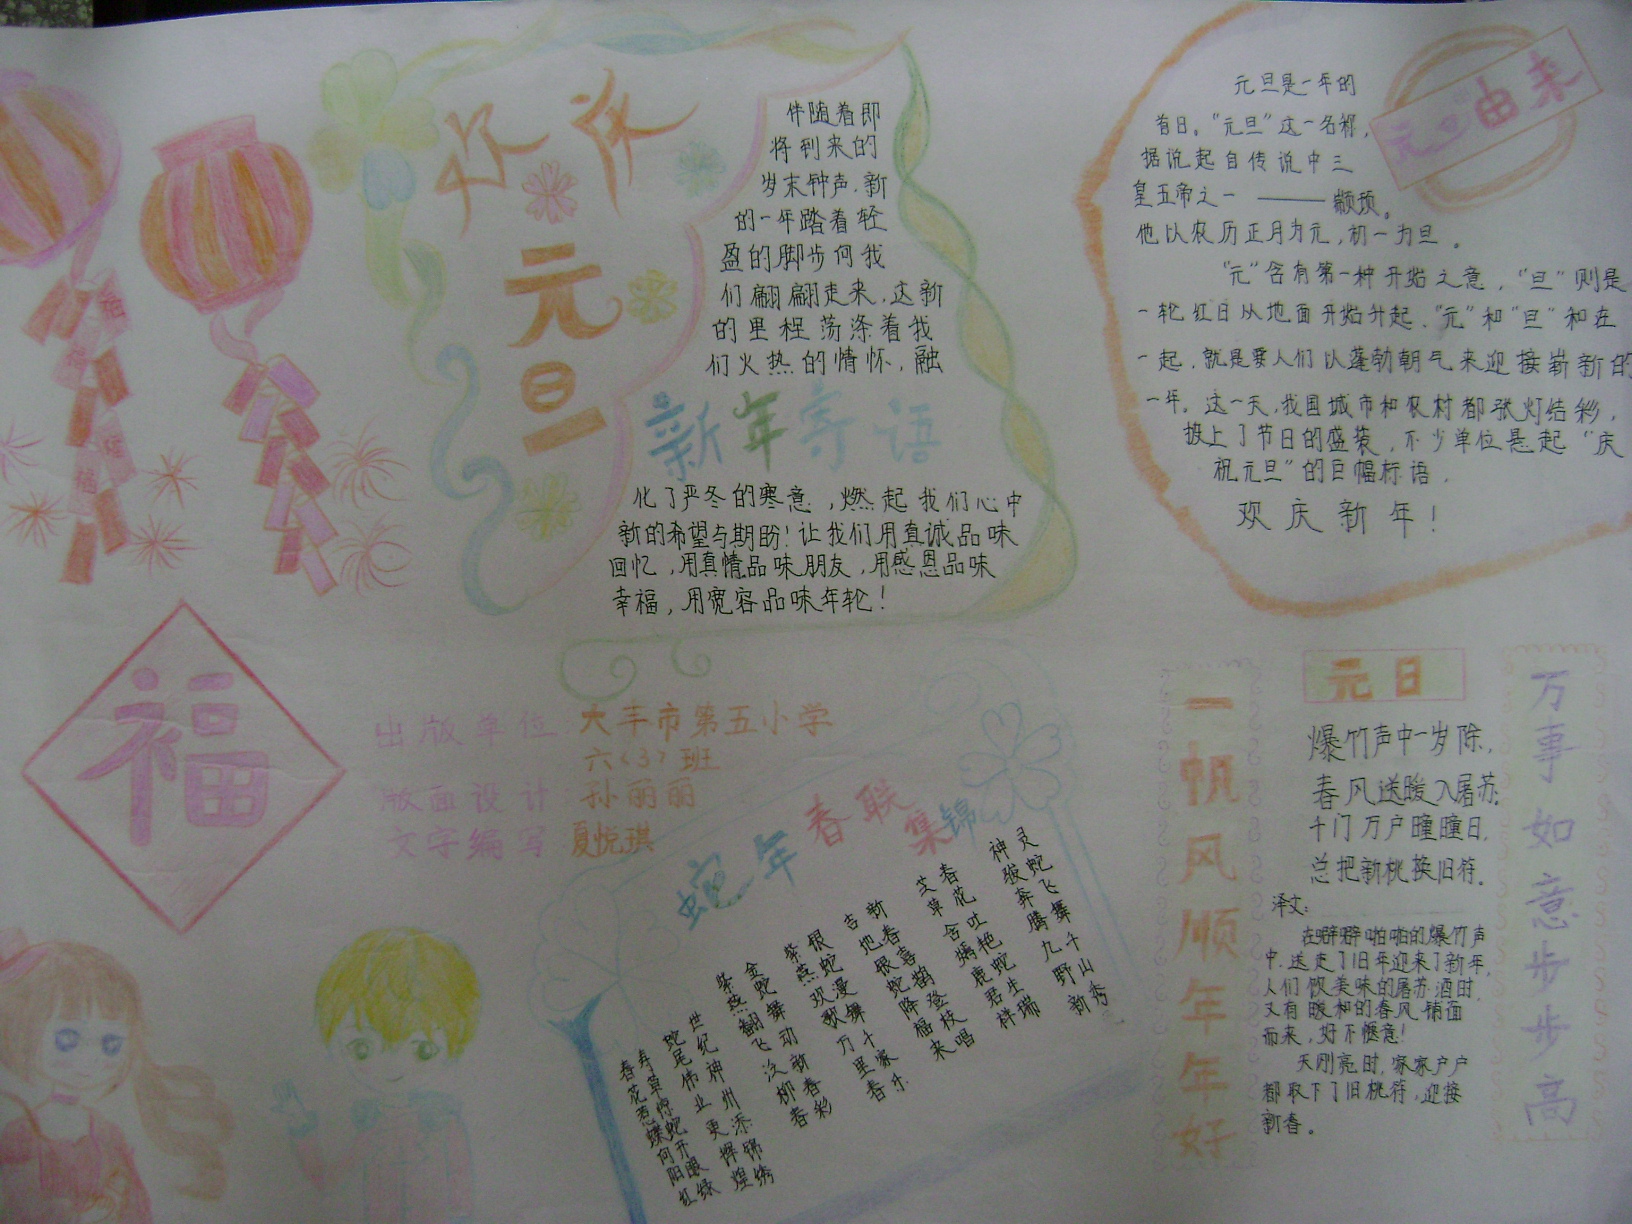 欢庆
元
旦
伴随着即
将到来的
岁末钟声,新
的一年踏着轻
盈的脚步向我
们翩翩走来,这新
的里程荡涤着我
们火热的情怀,融
新年寄语
化了严冬的寒意,燃起我们心中
新的希望与期盼!让我们用真诚品味
回忆,用真情品味朋友,用感恩品味
幸福,用宽容品味年轮!
元旦由来
元旦是一年的
首日。“元旦”这一名称,
据说起自传说中三
皇五帝之一——颛顼。
他以农历正月为元,初一为旦。
“元”含有第一种开始之意,“旦”则是
一轮红日从地面开始升起.“元”和“旦”和在
一起,就是要人们以蓬勃朝气来迎接崭新的
一年。这一天,我国城市和农村都张灯结彩,
披上了节日的盛装,不少单位悬起“庆
祝元旦”的巨幅标语.
欢庆新年!
福
出版单位 大丰市第五小学
六(3)班
版面设计 孙丽丽
文字编写 夏悦琪
蛇年春联集锦
灵蛇飞舞千山秀
神骏奔腾九野新
春花吐艳蛇生瑞
艾草含嫣鹿君祥
新春喜鹊登枝唱
吉地银蛇降福来
银蛇漫舞千家乐
紫燕欢歌万里春
金蛇舞动新春彩
紫燕翻飞泛柳春
世纪神州添锦绣
蛇尾伟业更辉煌
寿草惊蛇开眼绿
春花若蝶向阳红
一帆风顺年年好
元日
爆竹声中一岁除,
春风送暖入屠苏.
千门万户曈曈日,
总把新桃换旧符。
译文:
在噼噼啪啪的爆竹声
中,送走了旧年迎来了新年,
人们饮美味的屠苏酒时,
又有暖和的春风铺面
而来,好不惬意!
天刚亮时,家家户户
都取下了旧桃符,迎接
新春。
万事如意步步高